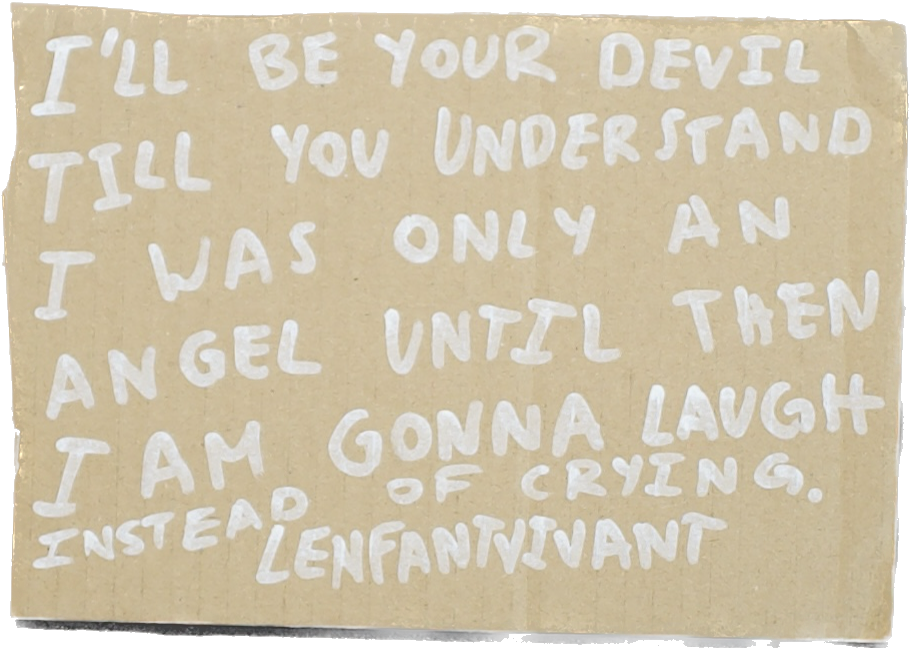 I'LL BE YOUR DEVIL
TILL YOU UNDERSTAND
I WAS ONLY AN
ANGEL UNTIL THEN
I AM GONNA LAUGH
INSTEAD OF CRYING.
LENFANTVIVANT